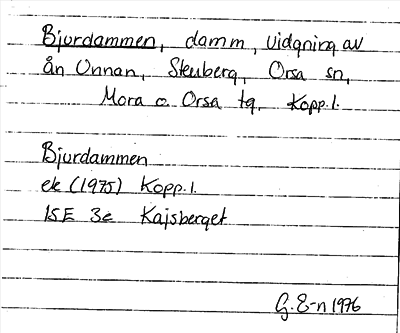 Bjurdammen, damm, vidgning av
ån Unnan, Stenberg, Orsa sn,
Mora o. Orsa tg, Kopp. l.
Bjurdammen
ek (1975) Kopp. l.
15E 3e Kajsberget
G. E-n 1976